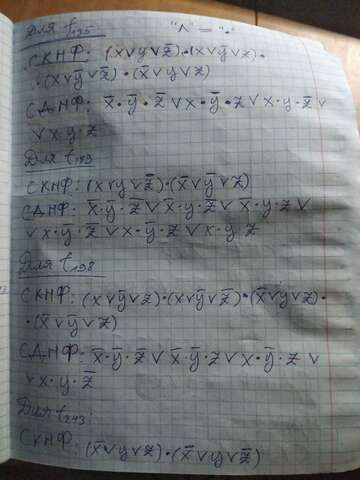 Для f₁₉₅ "∧" = "·"
СКНФ: (x∨y∨z̅)·(x∨y̅∨z)·
·(x∨y̅∨z̅)·(x̅∨y∨z)
СДНФ: x̅·y̅·z̅∨x·y̅·z∨x·y·z̅∨
∨x·y·z
Для
СКНФ: (x∨y∨z̅)·(x̅∨y̅∨z)
СДНФ: x̅·y̅·z̅∨x̅·y·z̅∨x̅·y·z∨
∨x·y̅·z̅∨x·y̅·z∨x·y·z
Для f₁₉₈
СКНФ: (x∨y̅∨z)·(x∨y̅∨z̅)·(x̅∨y∨z)·
·(x̅∨y̅∨z̅)
СДНФ: x̅·y̅·z̅∨x̅·y̅·z∨x·y̅·z∨
∨x·y·z̅
Для f₂₄₃:
СКНФ: (x̅∨y∨z)·(x̅∨y∨z̅)